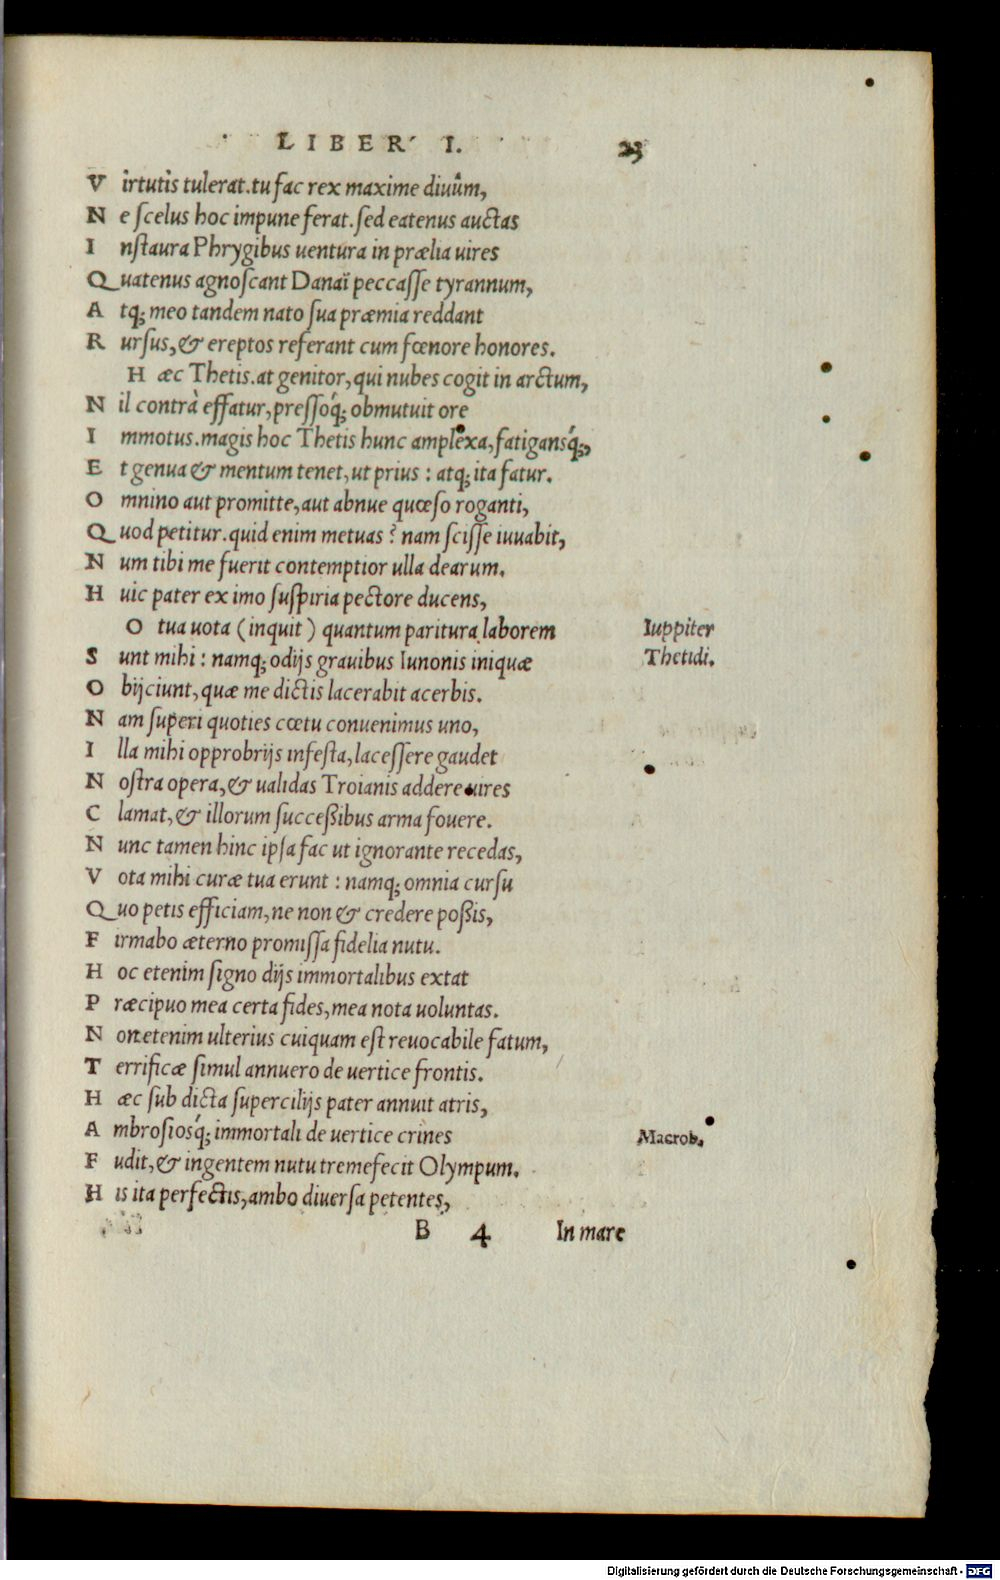 LIBER I. 23
Virtutis tulerat. tu fac rex maxime diuûm,
Ne scelus hoc impune ferat. sed eatenus auctas
Instaura Phrygibus uentura in prælia uires
Quatenus agnoscant Danaï peccasse tyrannum,
Atq; meo tandem nato sua præmia reddant
Rursus, & ereptos referant cum fœnore honores.
Hæc Thetis. at genitor, qui nubes cogit in arctum,
Nil contrà effatur, pressoq́; obmutuit ore
Immotus. magis hoc Thetis hunc amplexa, fatigansq́;,
Et genua & mentum tenet, ut prius : atq; ita fatur.
Omnino aut promitte, aut abnue quæso roganti,
Quod petitur. quid enim metuas ? nam scisse iuuabit,
Num tibi me fuerit contemptior ulla dearum.
Huic pater ex imo suspiria pectore ducens,
O tua uota (inquit) quantum paritura laborem Iuppiter
Sunt mihi : namq; odijs grauibus Iunonis iniquæ Thetidi.
Obijciunt, quæ me dictis lacerabit acerbis.
Nam superi quoties cœtu conuenimus uno,
Illa mihi opprobrijs infesta, lacessere gaudet
Nostra opera, & ualidas Troianis addere uires
Clamat, & illorum successibus arma fouere.
Nunc tamen hinc ipsa fac ut ignorante recedas,
Vota mihi curæ tua erunt : namq; omnia cursu
Quo petis efficiam, ne non & credere possis,
Firmabo æterno promissa fidelia nutu.
Hoc etenim signo dijs immortalibus extat
Præcipuo mea certa fides, mea nota uoluntas.
Non etenim ulterius cuiquam est reuocabile fatum,
Terrificæ simul annuero de uertice frontis.
Hæc sub dicta supercilijs pater annuit atris,
Ambrosiosq́; immortali de uertice crines Macrob.
Fudit, & ingentem nutu tremefecit Olympum.
His ita perfectis, ambo diuersa petentes,
B 4 In mare
Digitalisierung gefördert durch die Deutsche Forschungsgemeinschaft - DFG